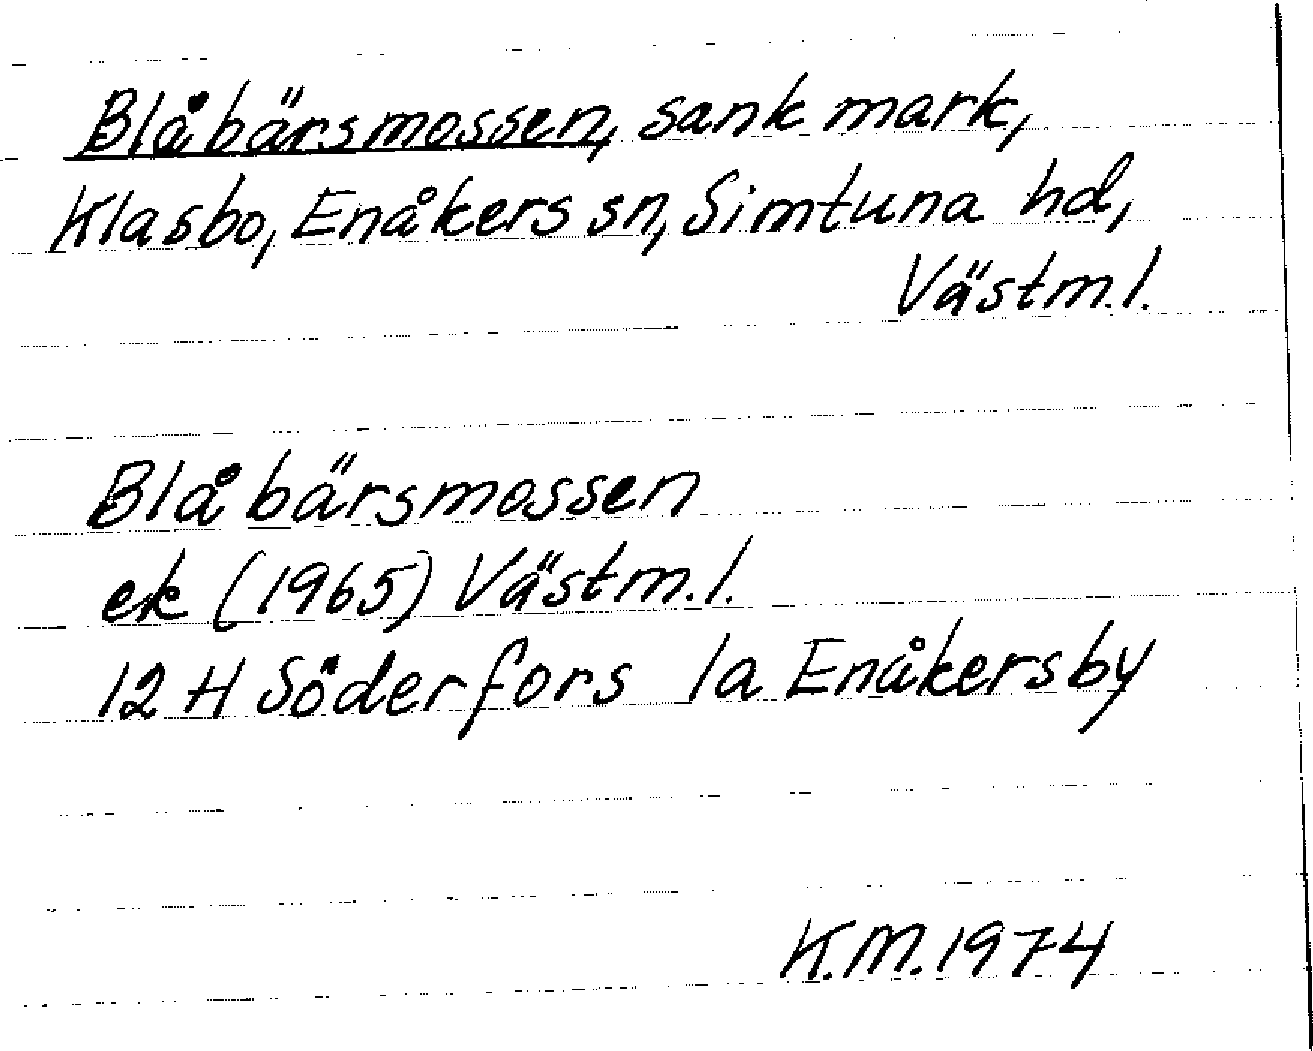 Blåbärsmossen, sank mark,
Klasbo, Enåkers sn, Simtuna hd,
Västm.l.
Blåbärsmossen
ek (1965) Västm.l.
12 H Söderfors 1a Enåkersby
K.M. 1974